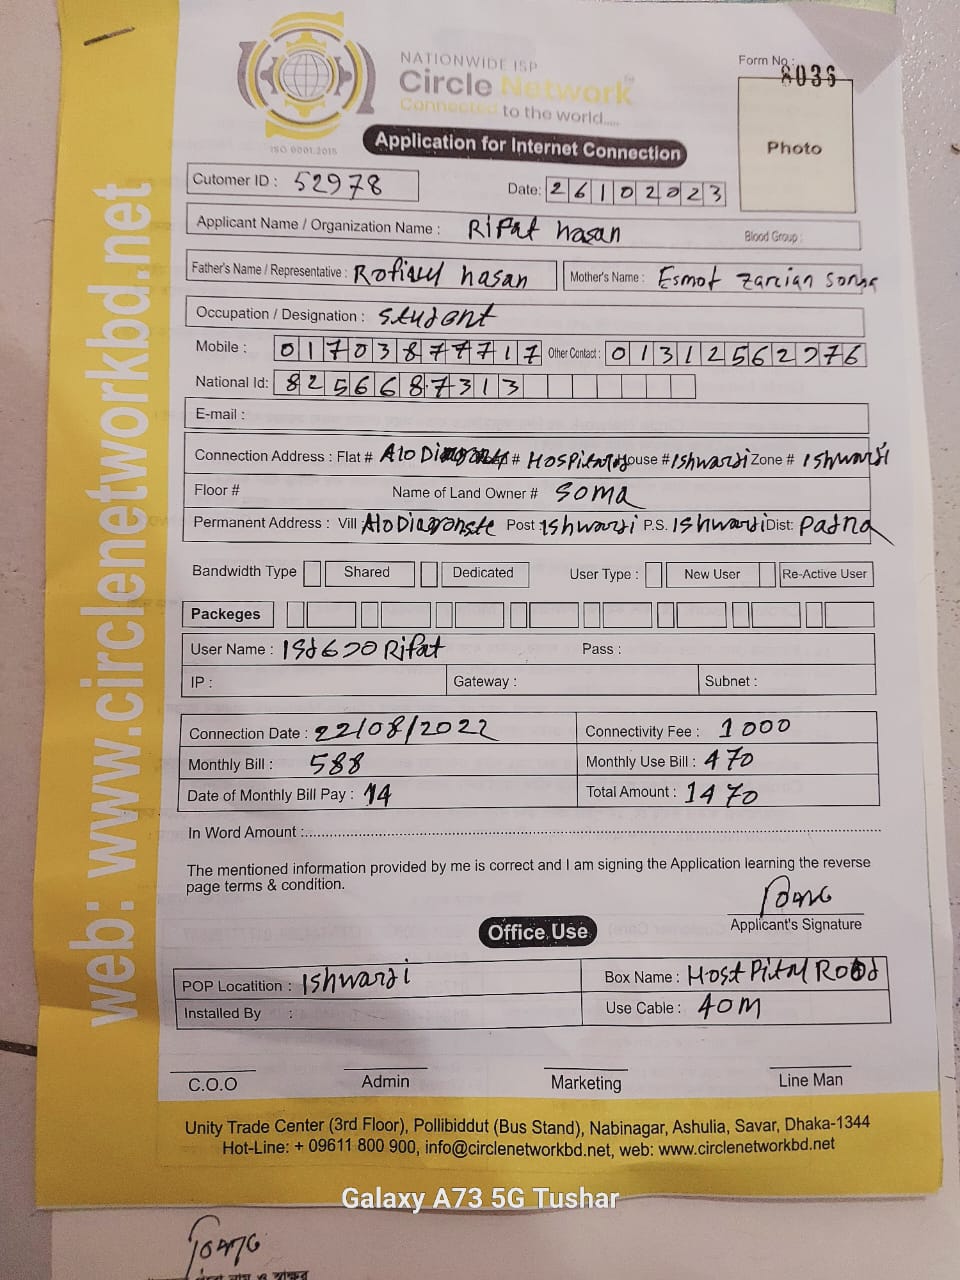 NATIONWIDE ISP
Circle Network™
Connected to the world.....
ISO 9001:2015
Form No : 8036
Photo
Application for Internet Connection
Cutomer ID : 52978
Date: 26102023
Applicant Name / Organization Name : Rifat hasan Blood Group :
Father's Name / Representative : Rofiqul hasan Mother's Name : Esmot Zarcian Soma
Occupation / Designation : Student
Mobile : 01703877717 Other Contact : 01312562776
National Id: 8256687313
E-mail :
Connection Address : Flat # Alo # HOSPital House # Ishwardi Zone # Ishwardi
Floor # Name of Land Owner # Soma
Permanent Address : Vill Alo Diagonste Post : Ishwardi P.S. Ishwardi Dist: Pabna
Bandwidth Type Shared Dedicated User Type : New User Re-Active User
Packeges
User Name : Pass :
IP : Gateway : Subnet :
Connection Date : 22/08/2022 Connectivity Fee : 1000
Monthly Bill : 588 Monthly Use Bill : 470
Date of Monthly Bill Pay : 14 Total Amount : 1470
In Word Amount :
The mentioned information provided by me is correct and I am signing the Application learning the reverse
page terms & condition.
Applicant's Signature
Office Use
POP Locatition : Ishwardi Box Name : HostPital Road
Installed By : Use Cable : 40M
C.O.O Admin Marketing Line Man
Unity Trade Center (3rd Floor), Pollibiddut (Bus Stand), Nabinagar, Ashulia, Savar, Dhaka-1344
Hot-Line: + 09611 800 900, info@circlenetworkbd.net, web: www.circlenetworkbd.net
web: www.circlenetworkbd.net
Galaxy A73 5G Tushar